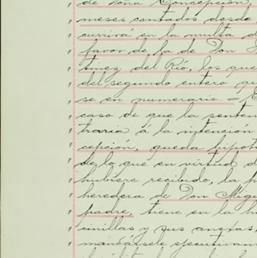 de Doña Concepción,
meses contados desde
currirá en la multa d
favor de la de Don J
tinez del Río, los que
del segundo entero q
se en numerario á
caso de que la senten
traria á la intención
cepción, queda hipot
de lo que en virtud d
hubiere recibido, la p
heredera de Don Mig
padre, tiene en la h
millas y sus anexas,
mandársele ejecutivam